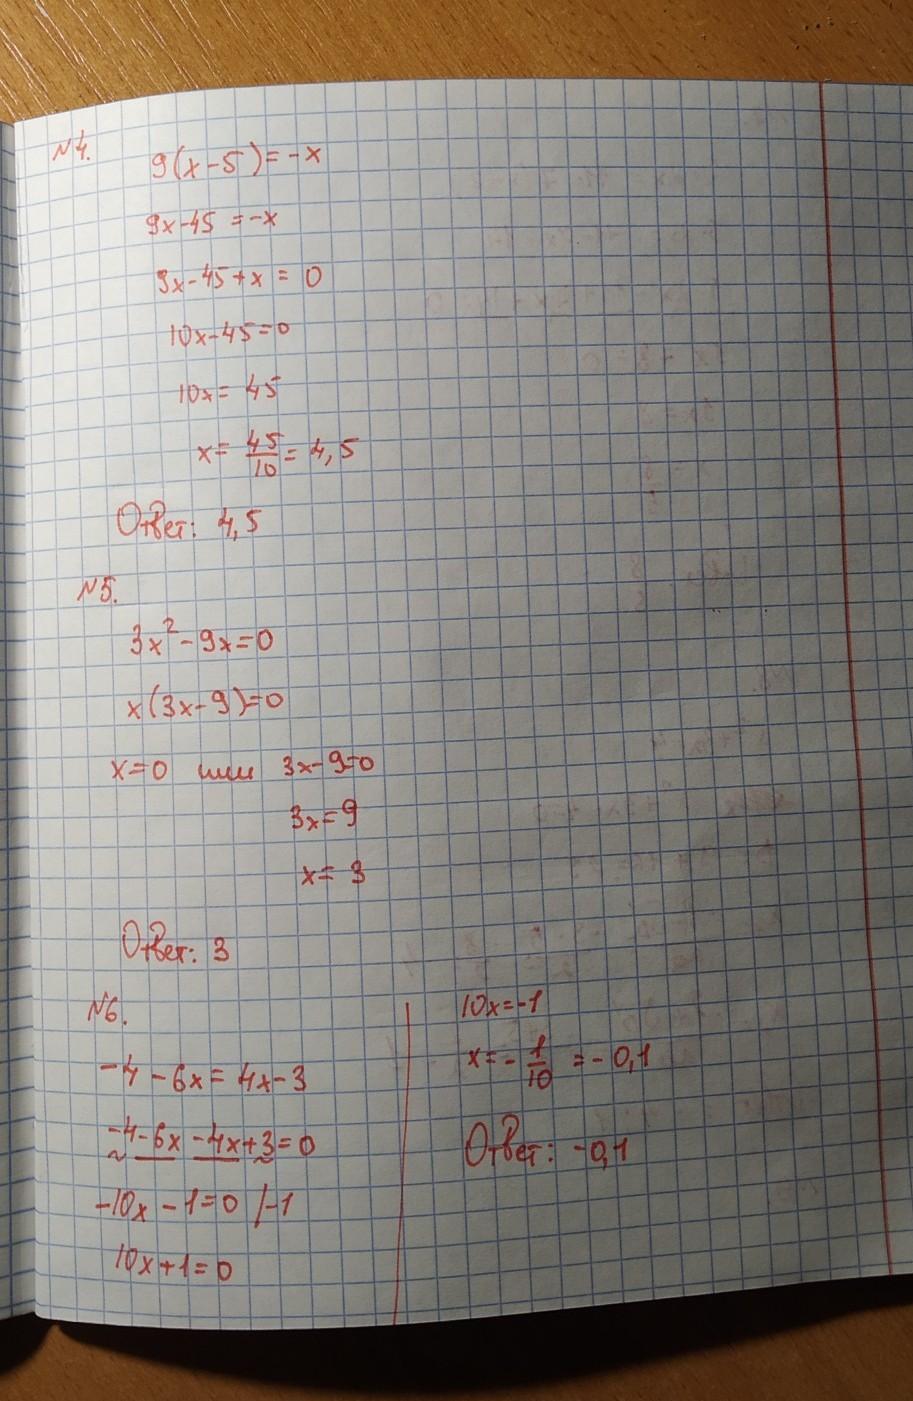 №4.
9(x-5)=-x
9x-45=-x
9x-45+x=0
10x-45=0
10x=45
x=45/10=4,5
Ответ: 4,5
№5.
3x²-9x=0
x(3x-9)=0
x=0 или 3x-9=0
3x=9
x=3
Ответ: 3
№6.
-4-6x=4x-3
-4-6x-4x+3=0
-10x-1=0 /-1
10x+1=0
10x=-1
x=-1/10=-0,1
Ответ: -0,1